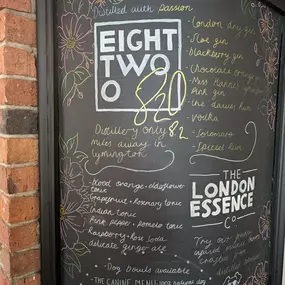 Distilled with passion
EIGHT
TWO
O
820
Distillery only 8.2
miles away in
Lymington
- London dry gin
- Sloe gin
- Blackberry gin
- Chocolate orange
- Miss
Pink gin
- the
- Vodka
- Special Rum
- blood orange + elderflower
tonic
- Grapefruit + Rosemary tonic
- Indian tonic
- Pink pepper + pomelo tonic
- Raspberry + Rose soda
- delicate ginger ale
THE
LONDON
ESSENCE
CO
Try our
- Dog bowls available
- THE CANINE MENU